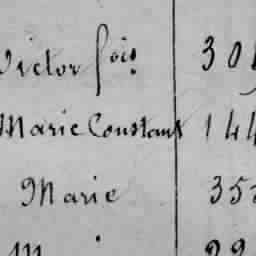 Victor fois. 30
Marie Constant 144
Marie 35